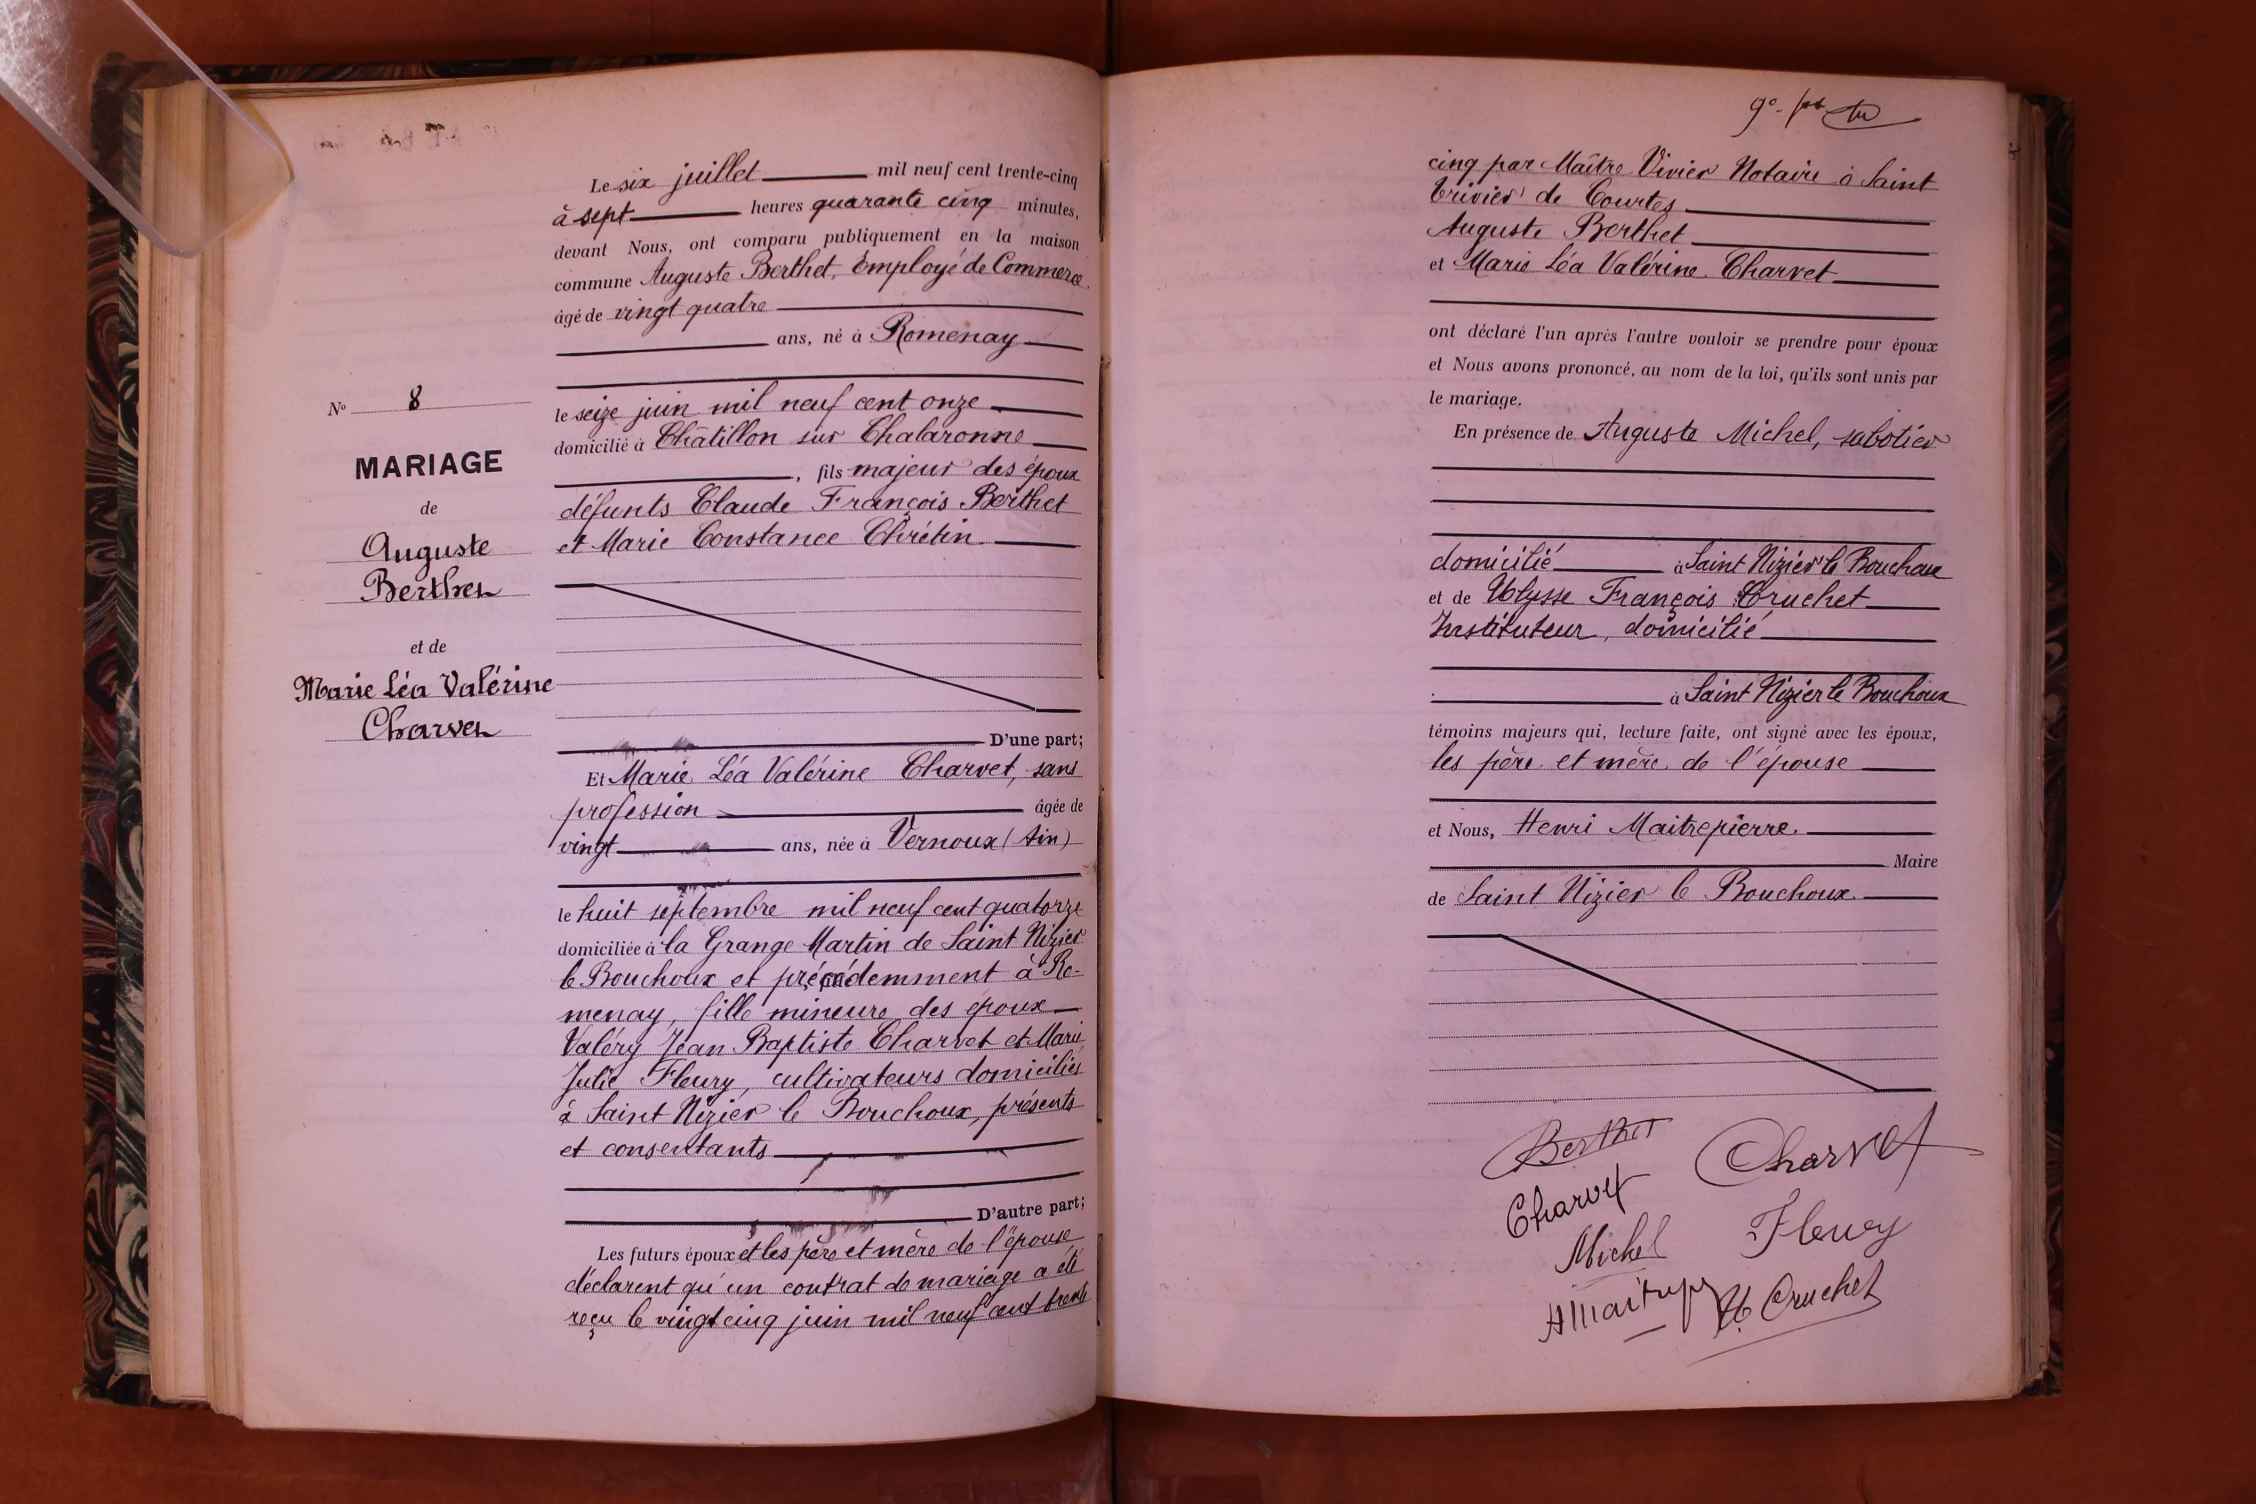 Le six juillet mil neuf cent trente-cinq
à sept heures quarante cinq minutes,
devant Nous, ont comparu publiquement en la maison
commune Auguste Berthet, Employé de Commerce
âgé de vingt quatre
ans, né à Romenay
le seize juin mil neuf cent onze
domicilié à Châtillon sur Chalaronne
, fils majeur des époux
défunts Claude François Berthet
et Marie Constance Chrétin
No 8
MARIAGE
de
Auguste
Berthet
et de
Marie Léa Valérine
Charvet
D'une part;
Et Marie Léa Valérine Charvet, sans
profession âgée de
vingt ans, née à Vernoux (Ain)
le huit septembre mil neuf cent quatorze
domiciliée à la Grange Martin de Saint Nizier
le Bouchoux et précédemment à Ro-
menay, fille mineure des époux
Valéry Jean Baptiste Charvet et Marie
Julie Fleury, cultivateurs domiciliés
à Saint Nizier le Bouchoux, présents
et consentants
D'autre part;
Les futurs époux et les père et mère de l'épouse
déclarent qu'un contrat de mariage a été
reçu le vingt cinq juin mil neuf cent trente
9e
cinq par Maître Vivier Notaire à Saint
Trivier de Courtes
Auguste Berthet
et Marie Léa Valérine Charvet
ont déclaré l'un après l'autre vouloir se prendre pour époux
et Nous avons prononcé, au nom de la loi, qu'ils sont unis par
le mariage.
En présence de Auguste Michel, sabotier
domicilié à Saint Nizier le Bouchoux
et de Ulysse François Cruchet
Instituteur, domicilié
à Saint Nizier le Bouchoux
témoins majeurs qui, lecture faite, ont signé avec les époux,
les père et mère de l'épouse
et Nous, Henri Maitrepierre.
Maire
de Saint Nizier le Bouchoux.
Berthet Charvet
Charvet
Michel Fleury
U. Cruchet